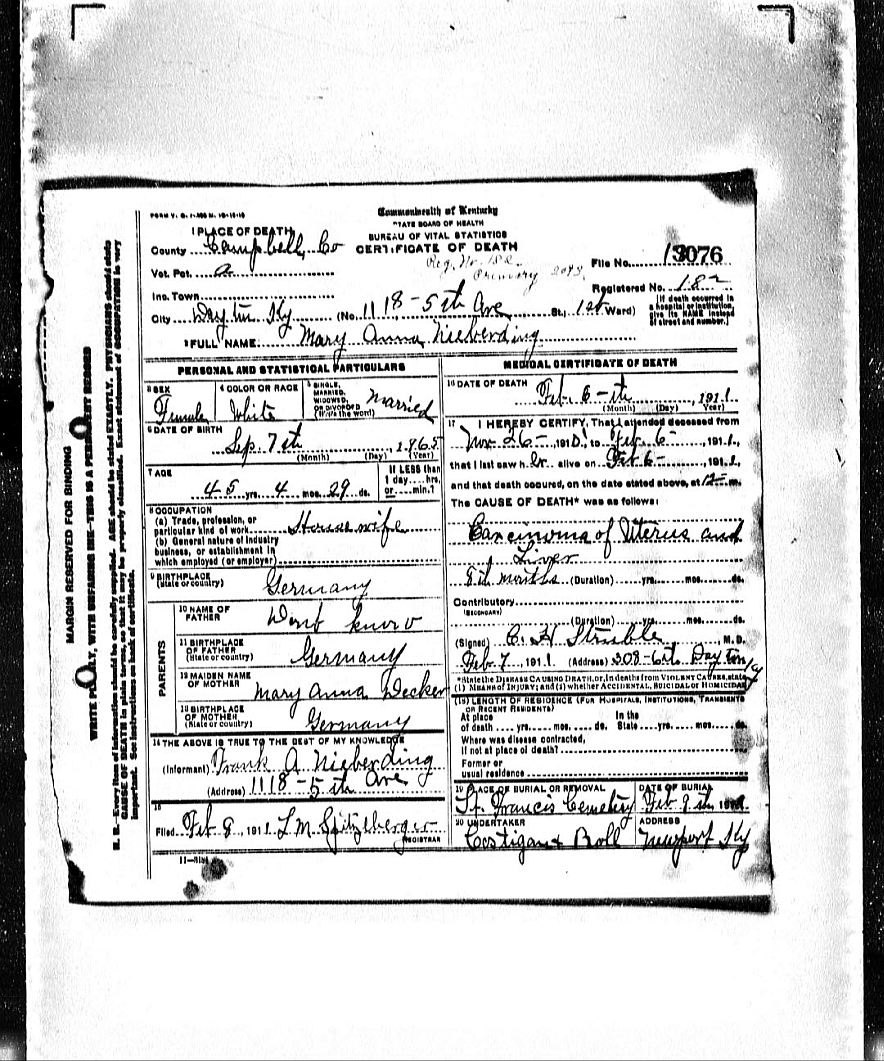 FORM V. S. 1-
Commonwealth of Kentucky
STATE BOARD OF HEALTH
BUREAU OF VITAL STATISTICS
CERTIFICATE OF DEATH
1 PLACE OF DEATH
County Campbell Co
Reg. No. 182
Primary
File No. 3076
Vot. Pct. a
Registered No. 182
Inc. Town
City Dayton Ky (No. 1118-5th Ave St., 1st Ward)
[If death occurred in a hospital or institution, give its NAME instead of street and number.]
2 FULL NAME Mary Anna Nieberding
PERSONAL AND STATISTICAL PARTICULARS
3 SEX
Female
4 COLOR OR RACE
White
5 SINGLE, MARRIED, WIDOWED, OR DIVORCED (Write the word)
Married
6 DATE OF BIRTH
Sep. 7th, 1865
(Month) (Day) (Year)
7 AGE
45 yrs. 4 mos. 29 ds.
If LESS than 1 day....hrs. or.....min.?
8 OCCUPATION
(a) Trade, profession, or particular kind of work Housewife
(b) General nature of industry business, or establishment in which employed (or employer)
9 BIRTHPLACE (State or country)
Germany
PARENTS
10 NAME OF FATHER
Dont know
11 BIRTHPLACE OF FATHER (State or country)
Germany
12 MAIDEN NAME OF MOTHER
Mary Anna Decker
13 BIRTHPLACE OF MOTHER (State or country)
Germany
14 THE ABOVE IS TRUE TO THE BEST OF MY KNOWLEDGE
(Informant) Frank A Nieberding
(Address) 1118-5th Ave
15
Filed Feb 8, 1911 L.M. Spitzlberger
REGISTRAR
MEDICAL CERTIFICATE OF DEATH
16 DATE OF DEATH
Feb. 6-th, 1911.
(Month) (Day) (Year)
17 I HEREBY CERTIFY, That I attended deceased from
Nov 26-, 1910, to Feb. 6-, 1911,
that I last saw her alive on Feb 6-, 1911,
and that death occured, on the date stated above, at 12- m.
The CAUSE OF DEATH* was as follows:
Carcinoma of Uterus and
Liver
months (Duration) yrs. mos. ds.
Contributory
(SECONDARY)
(Duration) yrs. mos. ds.
(Signed) C. H Struble, M. D.
Feb. 7, 1911. (Address) 308-6th Dayton Ky
*State the DISEASE CAUSING DEATH, or, in deaths from VIOLENT CAUSES, state
(1) MEANS OF INJURY; and (2) whether ACCIDENTAL, SUICIDAL or HOMICIDAL.
(18) LENGTH OF RESIDENCE (FOR HOSPITALS, INSTITUTIONS, TRANSIENTS OR RECENT RESIDENTS)
At place of death yrs. mos. ds. In the State yrs. mos. ds.
Where was disease contracted,
If not at place of death?
Former or
usual residence
19 PLACE OF BURIAL OR REMOVAL
St. Francis Cemetery
DATE OF BURIAL
Feb 9th, 1911
20 UNDERTAKER
Costigan & Roll
ADDRESS
Newport Ky
11-
MARGIN RESERVED FOR BINDING
WRITE PLAINLY, WITH UNFADING INK—THIS IS A PERMANENT RECORD
N. B.—Every item of information should be carefully supplied. AGE should be stated EXACTLY. PHYSICIANS should state
CAUSE OF DEATH in plain terms, so that it may be properly classified. Exact statement of OCCUPATION is very
important. See instructions on back of certificate.